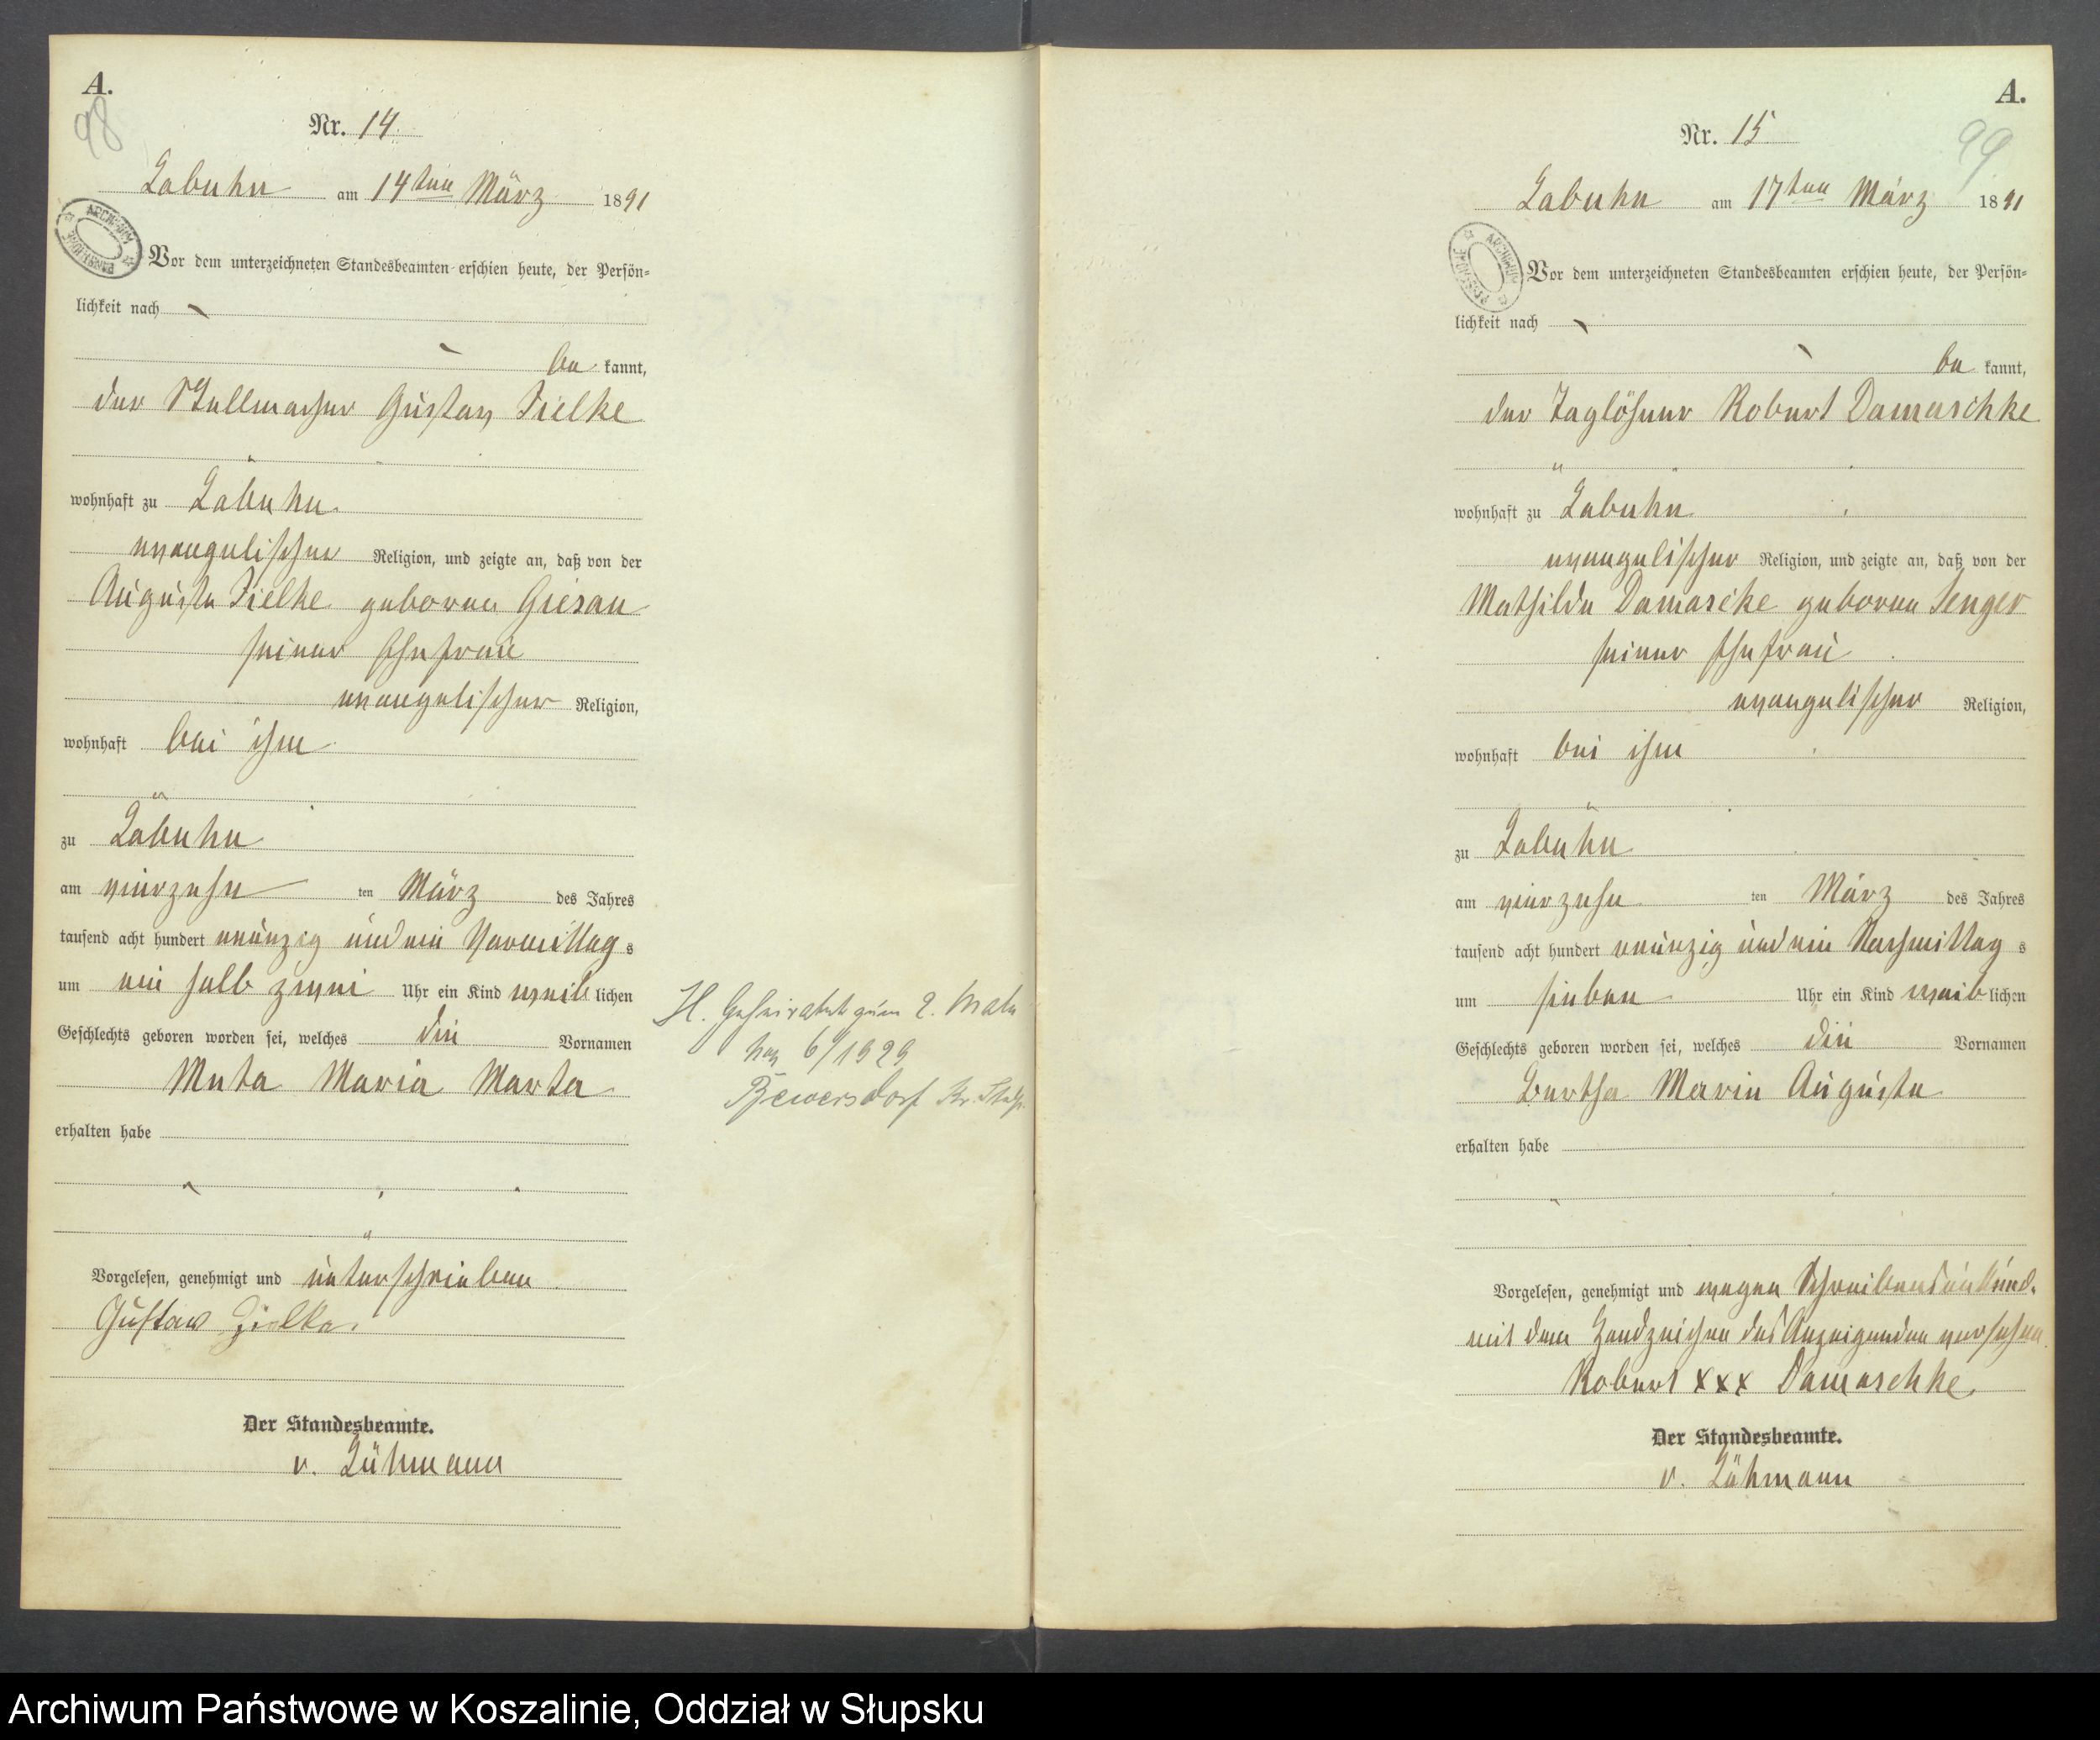 A.
98
Nr. 14.
Labuhn am 14ten März 1891
ARCHIWUM PAŃSTWOWE
Vor dem unterzeichneten Standesbeamten erschien heute, der Persön=
lichkeit nach
be kannt,
der Stellmacher Gustav Zielke
wohnhaft zu Labuhn
evangelischer Religion, und zeigte an, daß von der
Auguste Zielke geborne Giesau
seiner Ehefrau
evangelischer Religion,
wohnhaft bei ihm
zu Labuhn
am vierzehn ten März des Jahres
tausend acht hundert neunzig und ein Vormittag s
um ein halb zwei Uhr ein Kind weib lichen
Geschlechts geboren worden sei, welches die Vornamen
Meta Maria Marta
erhalten habe
Vorgelesen, genehmigt und unterschrieben
Gustav Zielke.
Der Standesbeamte.
v. Lühmann
H. Geheiratet zum 2. Male
6/1929
Bewersdorf Kr. Stolp
A.
99
Nr. 15
Labuhn am 17ten März 1891
ARCHIWUM PAŃSTWOWE
Vor dem unterzeichneten Standesbeamten erschien heute, der Persön=
lichkeit nach
be kannt,
der Taglöhner Robert Damaschke
wohnhaft zu Labuhn
evangelischer Religion, und zeigte an, daß von der
Mathilde Damascke geborne Senger
seiner Ehefrau
evangelischer Religion,
wohnhaft bei ihm
zu Labuhn
am vierzehn ten März des Jahres
tausend acht hundert neunzig und ein Nachmittag s
um sieben Uhr ein Kind weib lichen
Geschlechts geboren worden sei, welches die Vornamen
Bertha Marie Auguste
erhalten habe
Vorgelesen, genehmigt und wegen Schreibensunkund.
mit dem Handzeichen des Anzeigenden versehen.
Robert xxx Damaschke
Der Standesbeamte.
v. Lühmann
Archiwum Państwowe w Koszalinie, Oddział w Słupsku